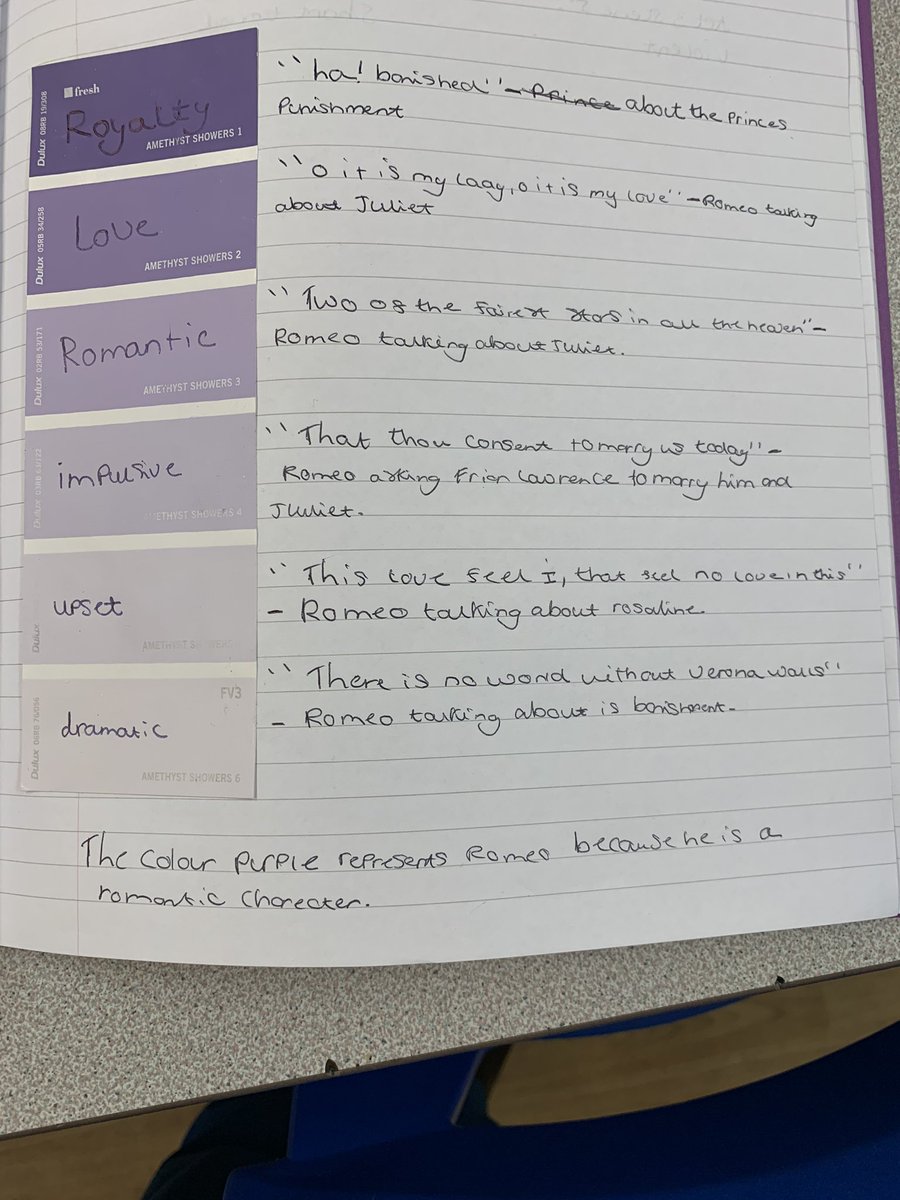 fresh
Dulux 08RB 19/308
Royalty
AMETHYST SHOWERS 1
``ha! banished'' - Prince about the Princes
Punishment
Dulux 05RB 34/258
Love
AMETHYST SHOWERS 2
``O it is my lady, o it is my love'' - Romeo talking
about Juliet
Dulux 02RB 53/171
Romantic
AMETHYST SHOWERS 3
``Two of the fairest stars in all the heaven'' -
Romeo talking about Juliet.
impulsive
AMETHYST SHOWERS 4
``That thou consent to marry us today'' -
Romeo asking Friar Lawrence to marry him and
Juliet.
Dulux
upset
AMETHYST SHOWERS
``This love feel I, that feel no love in this''
- Romeo talking about rosaline.
FV3
Dulux 06RB 76/056
dramatic
AMETHYST SHOWERS 6
``There is no world without verona walls''
- Romeo talking about is banishment-
The colour purple represents Romeo because he is a
romantic charecter.